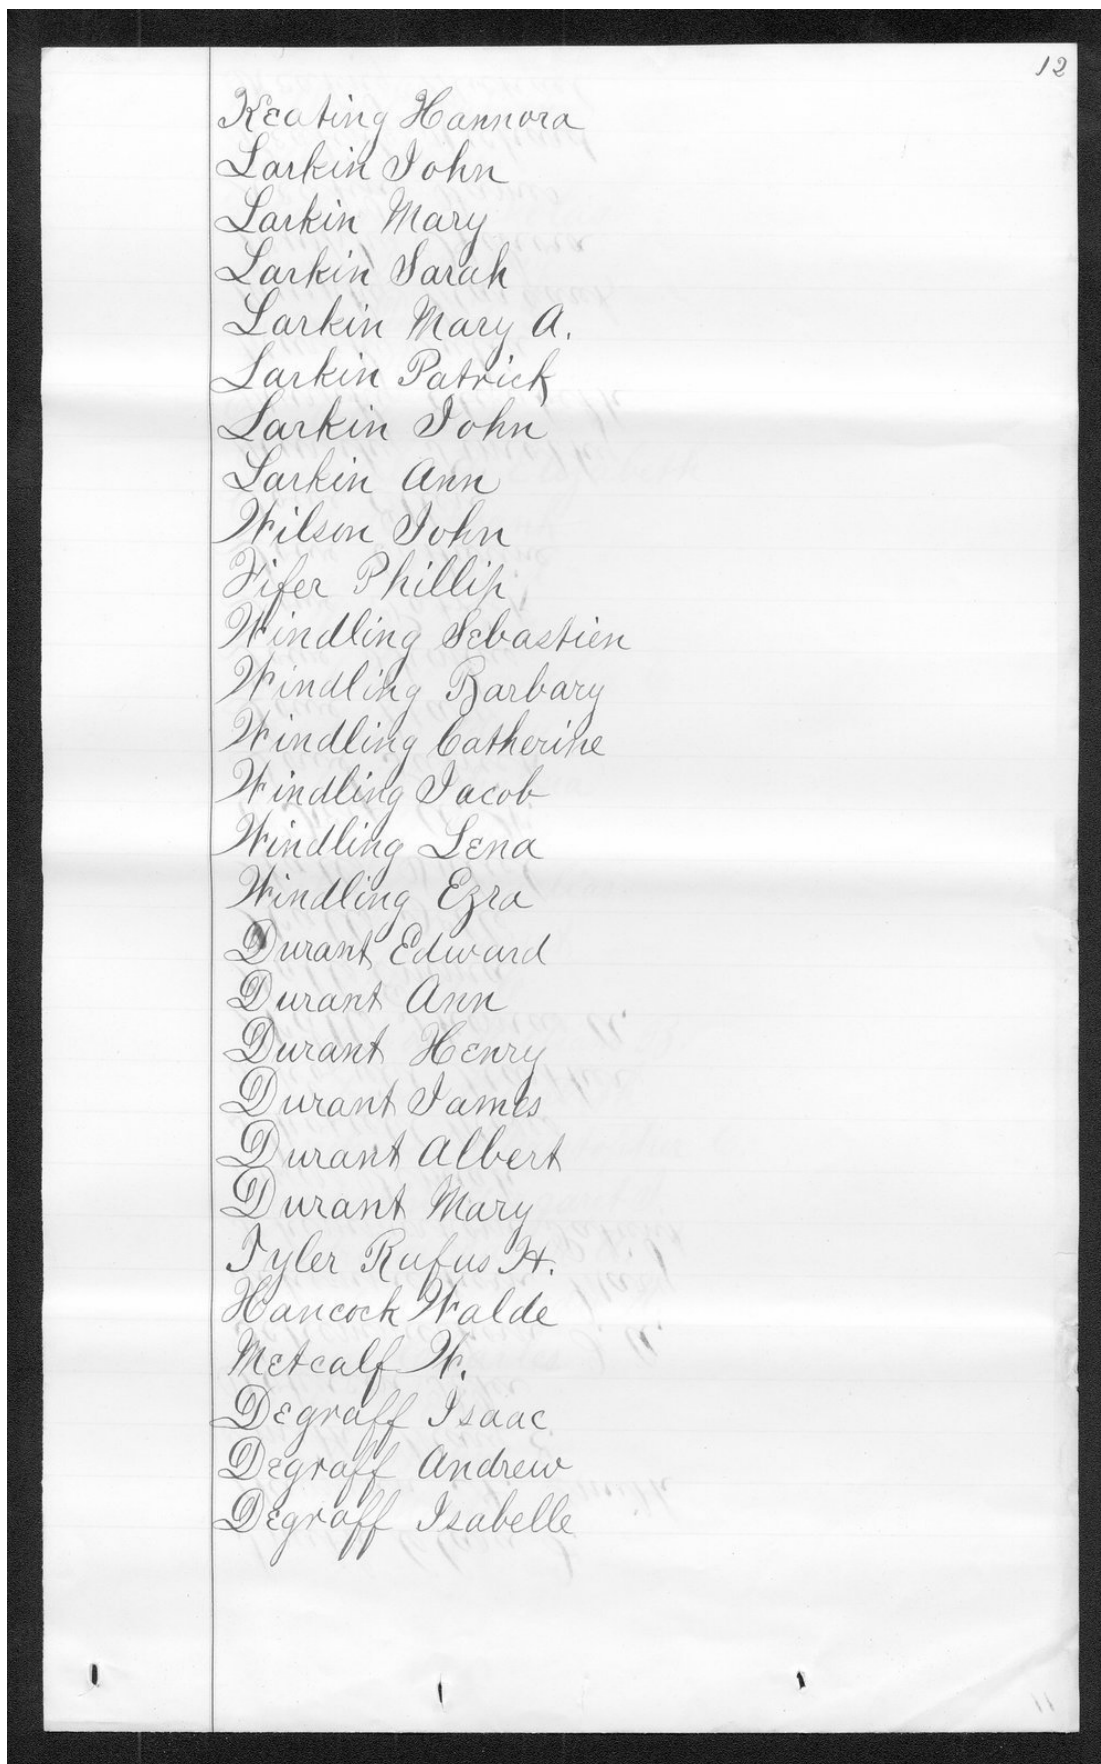 12
Keating Hannora
Larkin John
Larkin Mary
Larkin Sarah
Larkin Mary A.
Larkin Patrick
Larkin John
Larkin Ann
Wilson John
Fifer Phillip
Windling Sebastien
Windling Barbary
Windling Catherine
Windling Jacob
Windling Lena
Windling Ezra
Durant Edward
Durant Ann
Durant Henry
Durant James
Durant Albert
Durant Mary
Tyler Rufus H.
Hancock Walde
Metcalf W.
Degraff Isaac
Degraff Andrew
Degraff Isabelle